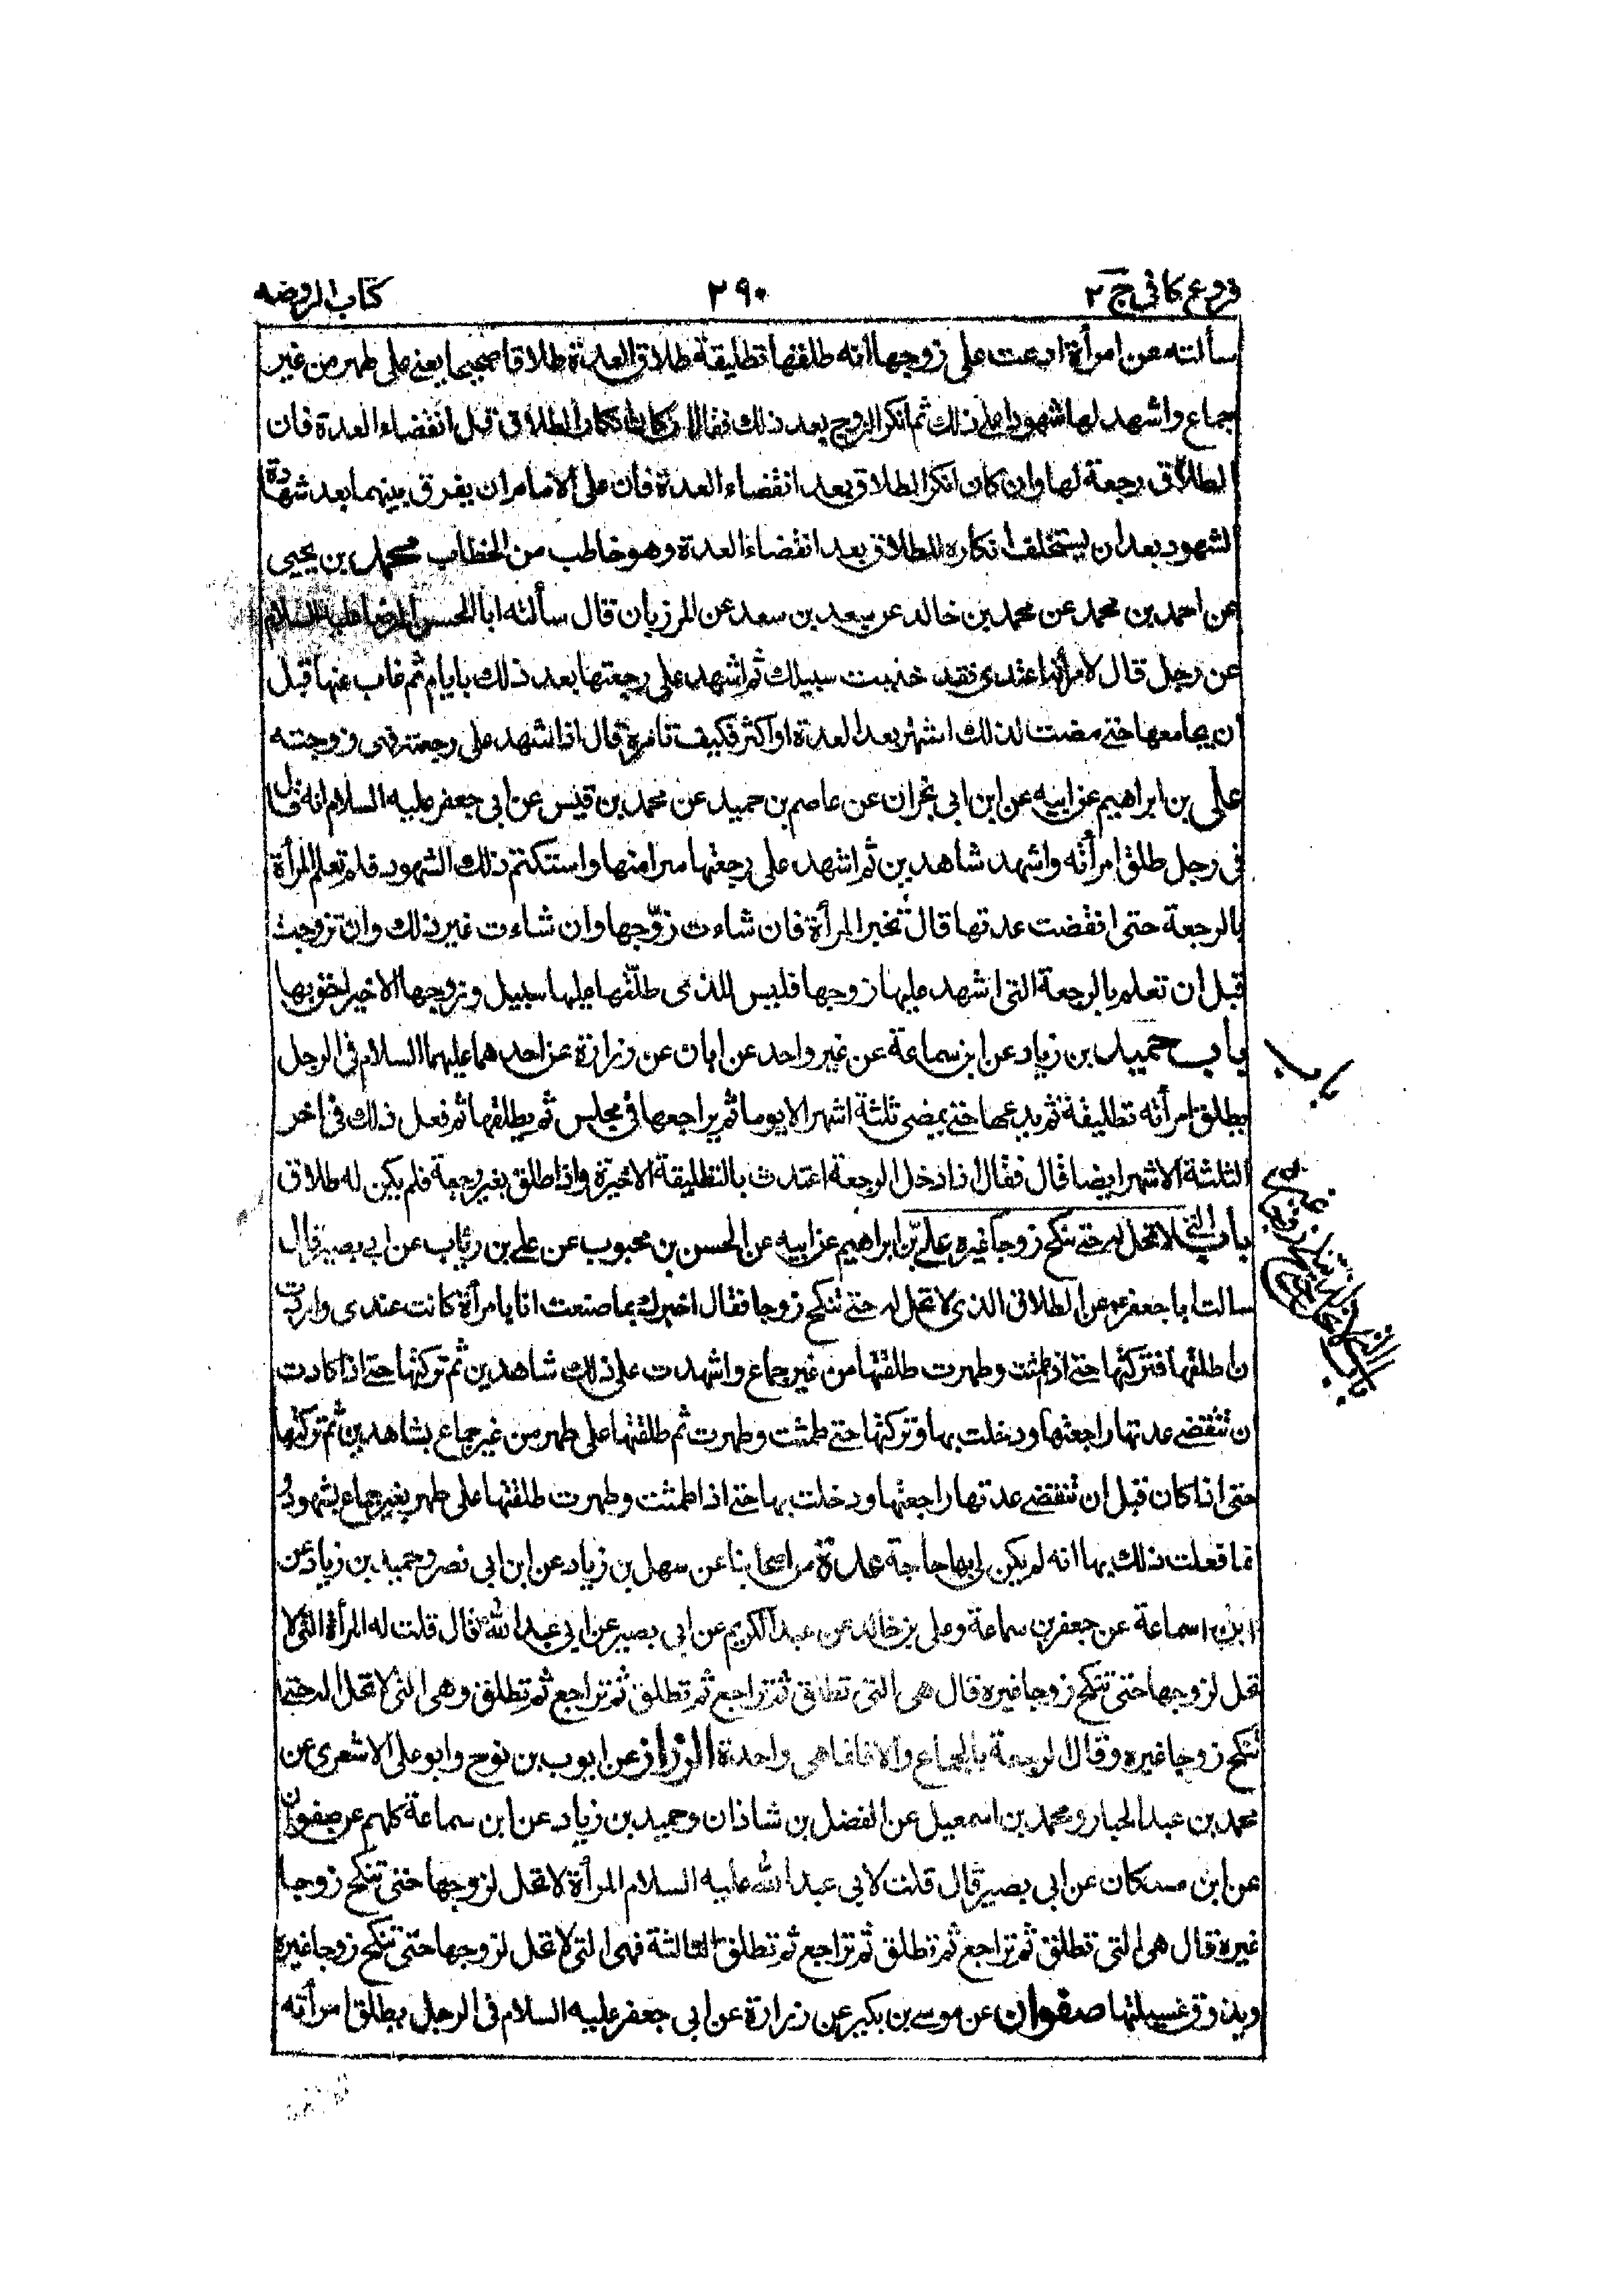 فروع كافى ج ٢
٢٩٠
كتاب الروضه
سألته عن امرأة ادعت على زوجها انه طلقها تطليقة طلاق العدة طلاقا صحيحا يعنى على طهر من غير
جماع واشهد لها شهودا على ذلك ثم انكر الزوج بعد ذلك فقال ان كان انكار الطلاق قبل انقضاء العدة فان
الطلاق رجعة لها وان كان انكر الطلاق بعد انقضاء العدة فان على الامام ان يفرق بينهما بعد شهادة
الشهود بعد ان يستحلف ان انكاره للطلاق بعد انقضاء العدة وهو خاطب من الخطاب محمد بن يحيى
عن احمد بن محمد عن محمد بن خالد عن سعد بن سعد عن المرزبان قال سألته ابا الحسن الرضا عليه السلام
عن رجل قال لامرأته اعتدى فقد خليت سبيلك ثم اشهد على رجعتها بعد ذلك بايام ثم غاب عنها قبل
ان يجامعها حتى مضت لذلك اشهر بعد العدة او اكثر فكيف تامره قال اذا اشهد على رجعته فهى زوجته
على بن ابراهيم عن ابيه عن ابن ابى نجران عن عاصم بن حميد عن محمد بن قيس عن ابى جعفر عليه السلام انه قال
فى رجل طلق امرأته واشهد شاهدين ثم اشهد على رجعتها سرا منها واستكتم ذلك الشهود فلم تعلم المرأة
بالرجعة حتى انقضت عدتها قال تخير المرأة فان شاءت زوّجها وان شاءت غير ذلك وان تزوجت
قبل ان تعلم بالرجعة التى اشهد عليها زوجها فليس للذى طلّقها عليها سبيل وزوجها الاخير احق بها
باب حميد بن زياد عن ابن سماعة عن غير واحد عن ابان عن زرارة عن احدهما عليهما السلام فى الرجل
يطلق امرأته تطليقة ثم يدعها حتى يمضى ثلثة اشهر الا يوما ثم يراجعها فى مجلس ثم يطلقها ثم فعل ذلك فى اخر
الثلثة الاشهر ايضا قال فقال اذا دخل الرجعة اعتدت بالتطليقة الاخيرة واذا طلق بغير رجعة فلم يكن له طلاق
باب التى لا تحل له حتى تنكح زوجا غيره على بن ابراهيم عن ابيه عن الحسن بن محبوب عن على بن رئاب عن ابى بصير قال
سالت ابا جعفر عن الطلاق الذى لا تحل له حتى تنكح زوجا فقال اخبرك بما صنعت انا بامرأة كانت عندى واردت
ان اطلقها فتركتها حتى اذا طمثت وطهرت طلقتها من غير جماع واشهدت على ذلك شاهدين ثم تركتها حتى اذا كادت
ان تنقضى عدتها راجعتها ودخلت بها وتركتها حتى طمثت وطهرت ثم طلقتها على طهر من غير جماع بشاهدين ثم تركتها
حتى اذا كان قبل ان تنقضى عدتها راجعتها ودخلت بها حتى اذا طمثت وطهرت طلقتها على طهر بغير جماع بشهود
انما فعلت ذلك بها انه لم يكن لى بها حاجة عدة من اصحابنا عن سهل بن زياد عن ابن ابى نصر وحميد بن زياد عن
ابن سماعة عن جعفر بن سماعة وعلى بن خالد عن عبد الكريم عن ابى بصير عن ابى عبد الله قال قلت له المرأة التى لا
تحل لزوجها حتى تنكح زوجا غيره قال هى التى تطلق ثم تراجع ثم تطلق ثم تراجع ثم تطلق وهى التى لا تحل له حتى
تنكح زوجا غيره وقال الرجعة بالجماع والا فانما هى واحدة الرزاز عن ايوب بن نوح وابو على الاشعرى عن
محمد بن عبد الجبار ومحمد بن اسمعيل عن الفضل بن شاذان وحميد بن زياد عن ابن سماعة كلهم عن صفوان
عن ابن مسكان عن ابى بصير قال قلت لابى عبد الله عليه السلام المرأة لا تحل لزوجها حتى تنكح زوجا
غيره قال هى التى تطلق ثم تراجع ثم تطلق ثم تراجع ثم تطلق الثالثة فهى التى لا تحل لزوجها حتى تنكح زوجا غيره
ويذوق عسيلتها صفوان عن موسى بن بكير عن زرارة عن ابى جعفر عليه السلام فى الرجل يطلق امرأته
باب